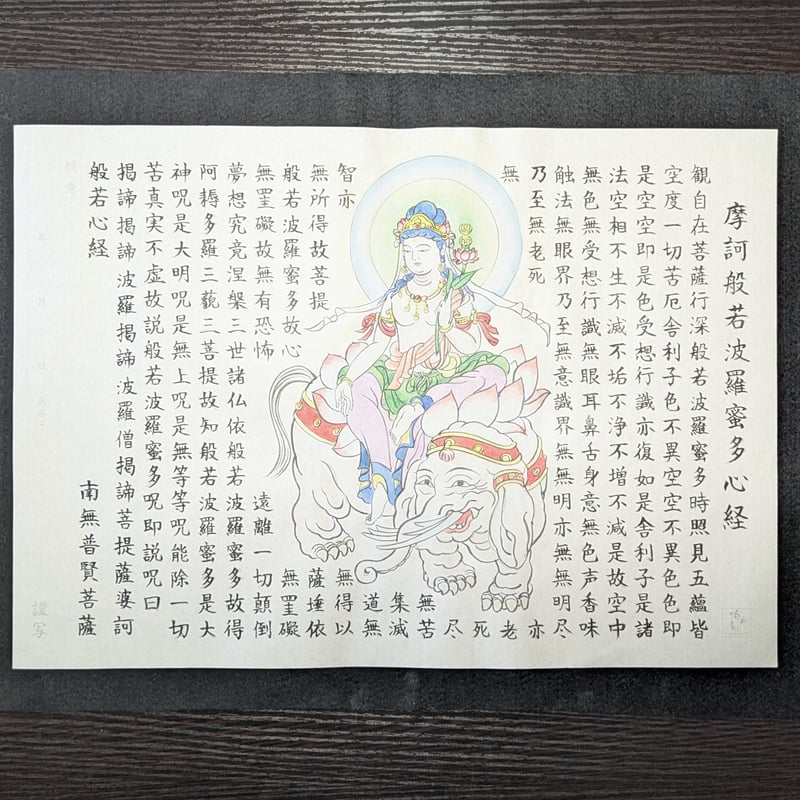 摩訶般若波羅蜜多心経
観自在菩薩行深般若波羅蜜多時照見五蘊皆
空度一切苦厄舎利子色不異空空不異色色即
是空空即是色受想行識亦復如是舎利子是諸
法空相不生不滅不垢不浄不増不減是故空中
無色無受想行識無眼耳鼻舌身意無色声香味
触法無眼界乃至無意識界無無明亦無無明尽
乃至無老死 亦
無 老
死
尽
無苦
集滅
道無
智亦 無得以
無所得故菩提 薩埵依
般若波羅蜜多故心 無罣礙
無罣礙故無有恐怖 遠離一切顛倒
夢想究竟涅槃三世諸仏依般若波羅蜜多故得
阿耨多羅三藐三菩提故知般若波羅蜜多是大
神呪是大明呪是無上呪是無等等呪能除一切
苦真実不虚故説般若波羅蜜多呪即説呪曰
揭諦揭諦波羅揭諦波羅僧揭諦菩提薩婆訶
般若心経 南無普賢菩薩
願意
年 月 日
謹写